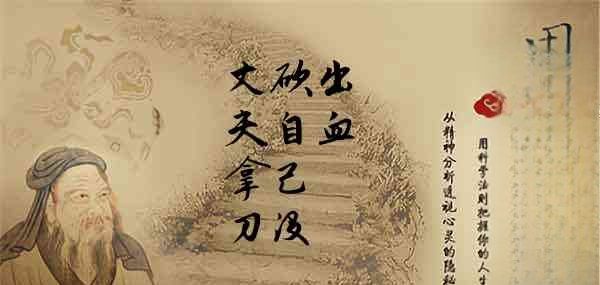 丈夫拿刀
砍自己没
出血
用科学法则把握你的人生
从精神分析透视心灵的隐秘